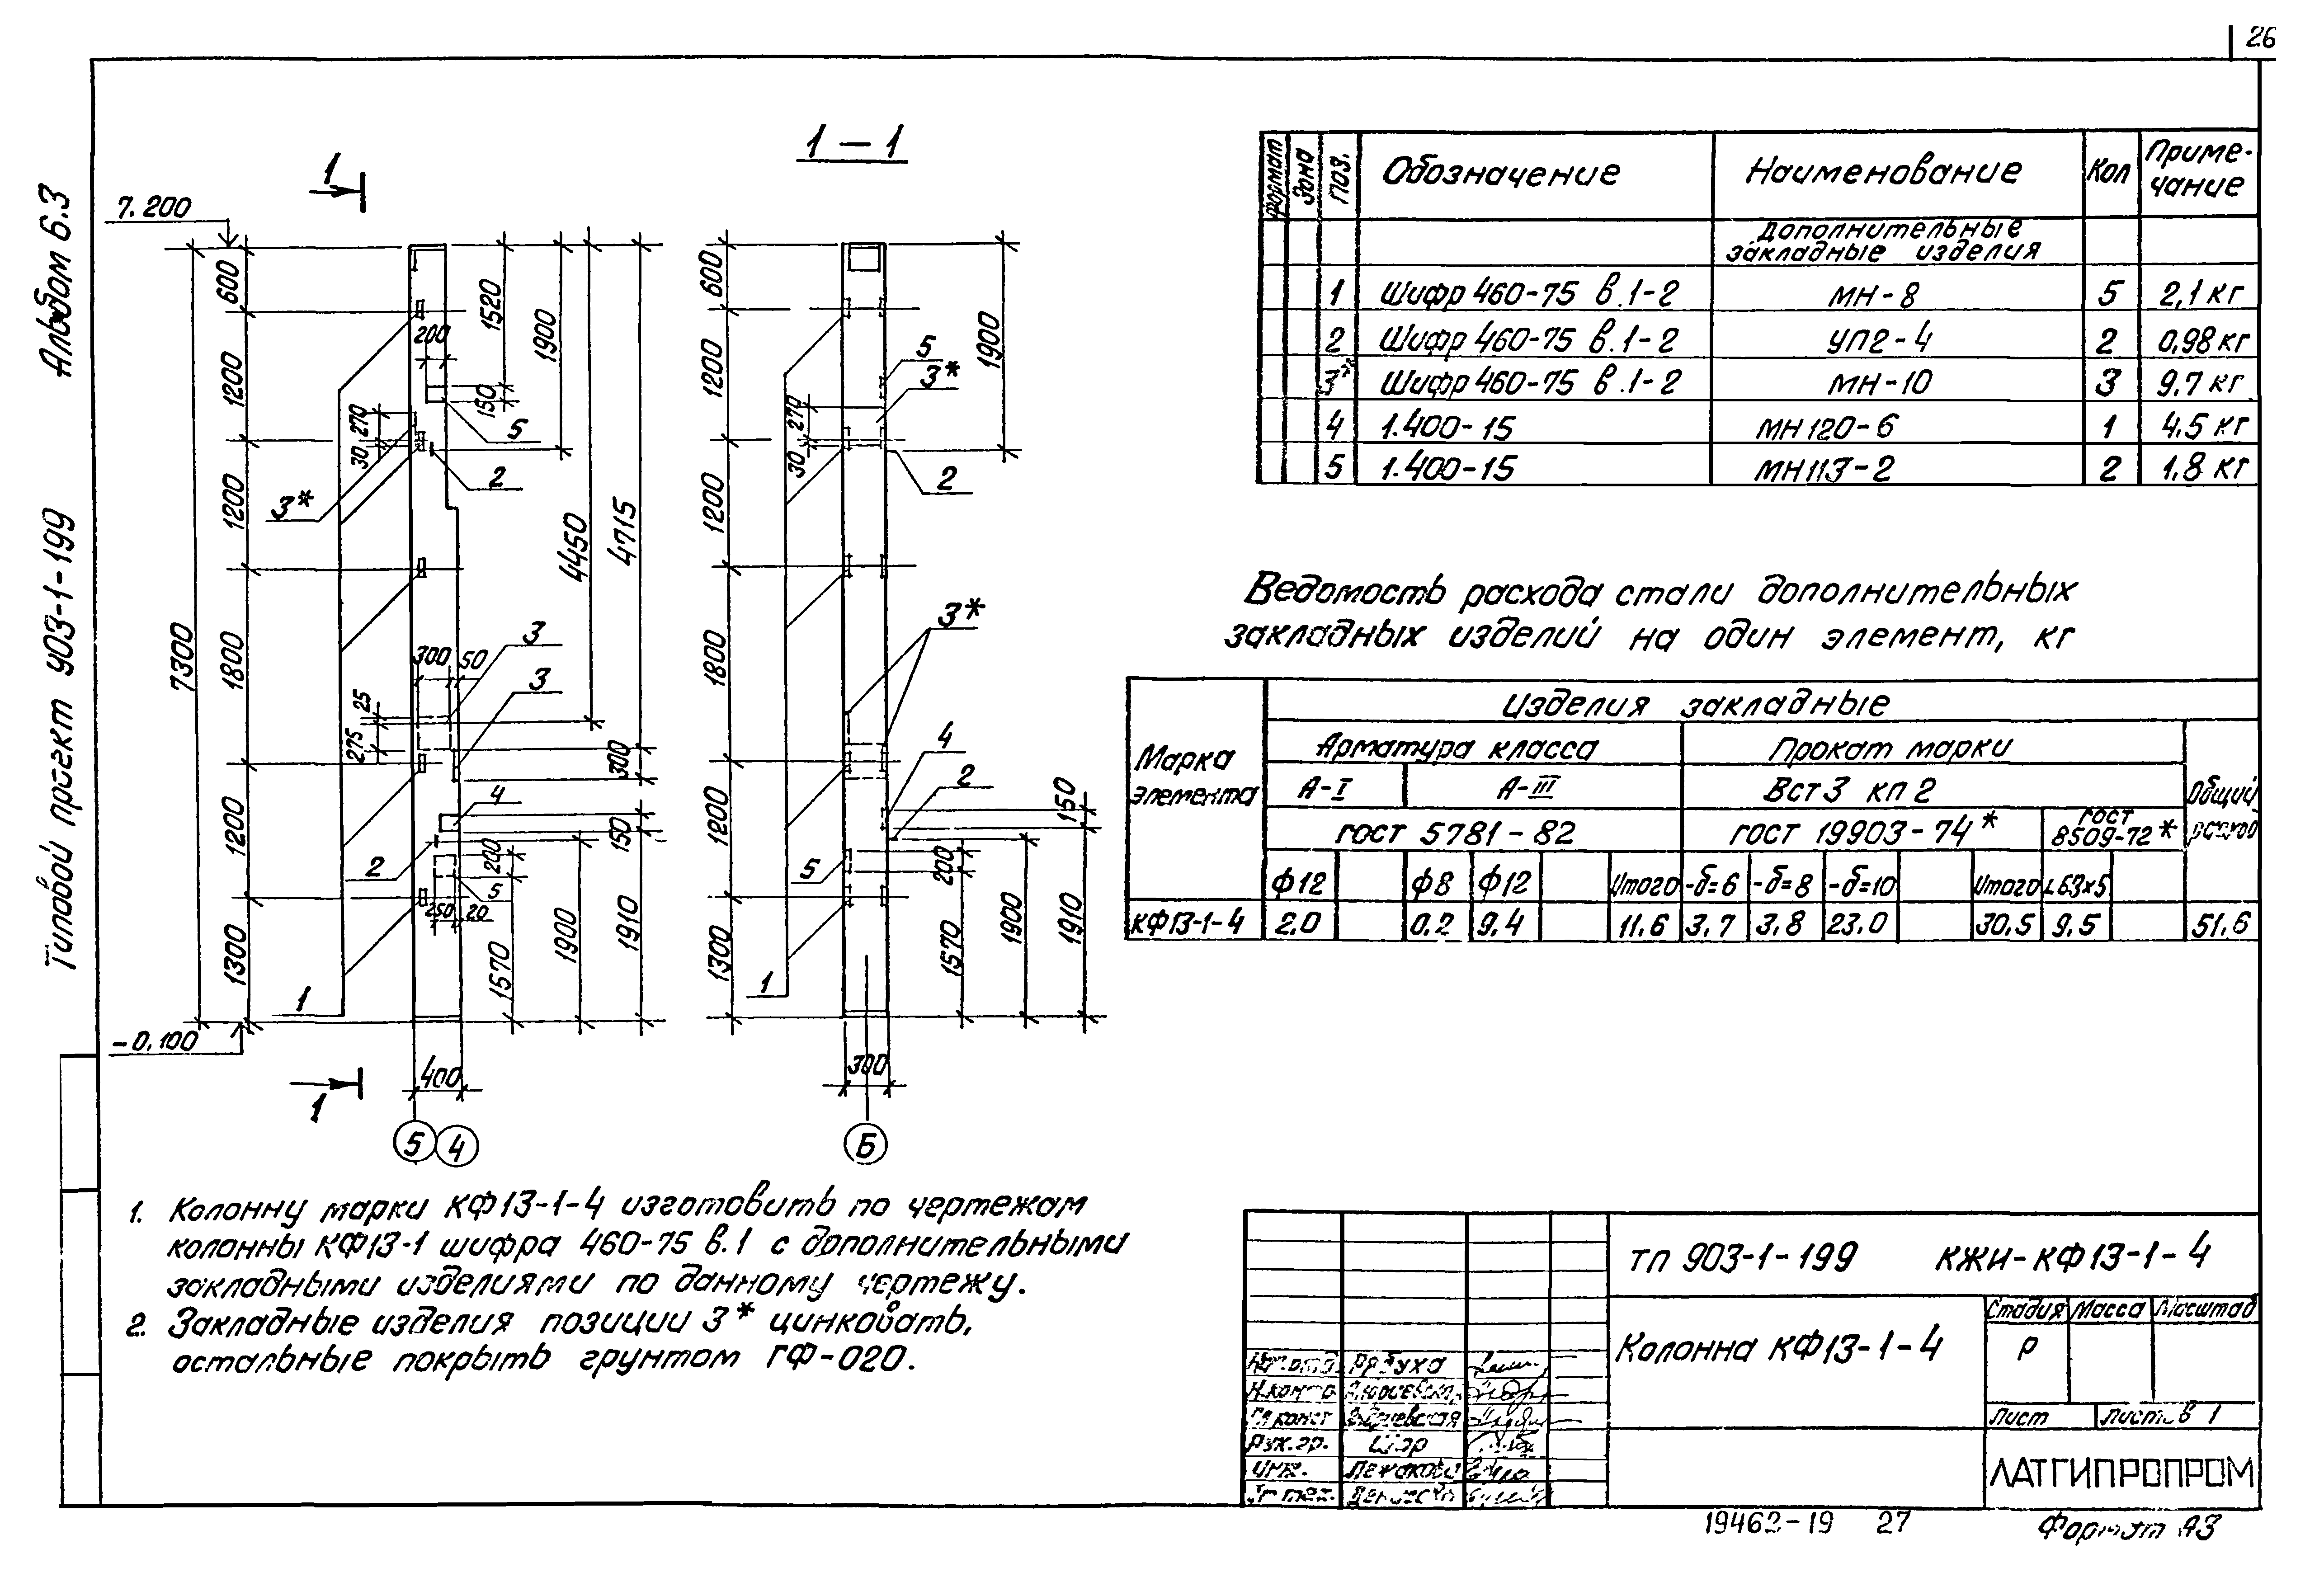 26
Альбом 6.3
Типовой проект 903-1-199
1 – 1
1
7.200
600
1200
1200
1800
1200
1300
7300
-0.100
1520
200
150
1900
270
30
5
2
3*
4450
4715
300
50
3
3
25
275
300
4
150
2
200
5
250
20
1570
1900
1910
1
400
1
5
4
600
1200
1200
1800
1200
1300
1900
5
3*
270
30
2
3*
4
2
150
5
200
1570
1900
1910
1
300
Б
Формат
Зона
Поз.
Обозначение
Наименование
Кол
Приме-
чание
Дополнительные
закладные изделия
1 Шифр 460-75 в.1-2 МН-8 5 2,1 кг
2 Шифр 460-75 в.1-2 УП2-4 2 0,98 кг
3* Шифр 460-75 в.1-2 МН-10 3 9,7 кг
4 1.400-15 МН120-6 1 4,5 кг
5 1.400-15 МН113-2 2 1,8 кг
Ведомость расхода стали дополнительных
закладных изделий на один элемент, кг
Марка
элемента
Изделия закладные
Арматура класса
Прокат марки
Общий
расход
А-I
А-III
Вст3 кп2
ГОСТ 5781-82
ГОСТ 19903-74*
ГОСТ
8509-72*
ф12 ф8 ф12 Итого -δ=6 -δ=8 -δ=10 Итого L63×5
КФ13-1-4 2,0 0,2 9,4 11,6 3,7 3,8 23,0 30,5 9,5 51,6
1. Колонну марки КФ13-1-4 изготовить по чертежам
колонны КФ13-1 шифра 460-75 в.1 с дополнительными
закладными изделиями по данному чертежу.
2. Закладные изделия позиции 3* цинковать,
остальные покрыть грунтом ГФ-020.
ТП 903-1-199 КЖИ-КФ13-1-4
Колонна КФ13-1-4
Стадия Масса Масштаб
Р
Лист Листов 1
ЛАТГИПРОПРОМ
Рябуха
Н.контр
Гл.конст
Рук.гр.
Инж.
19462-19 27
Формат А3